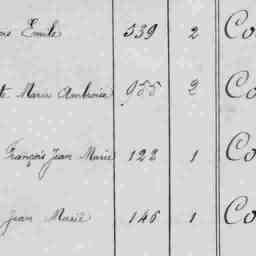 Emile 539 2 Co
te Marie Ambroise 955 2 Co
François Jean Marie 122 1 Co
Jean Marie 146 1 Co